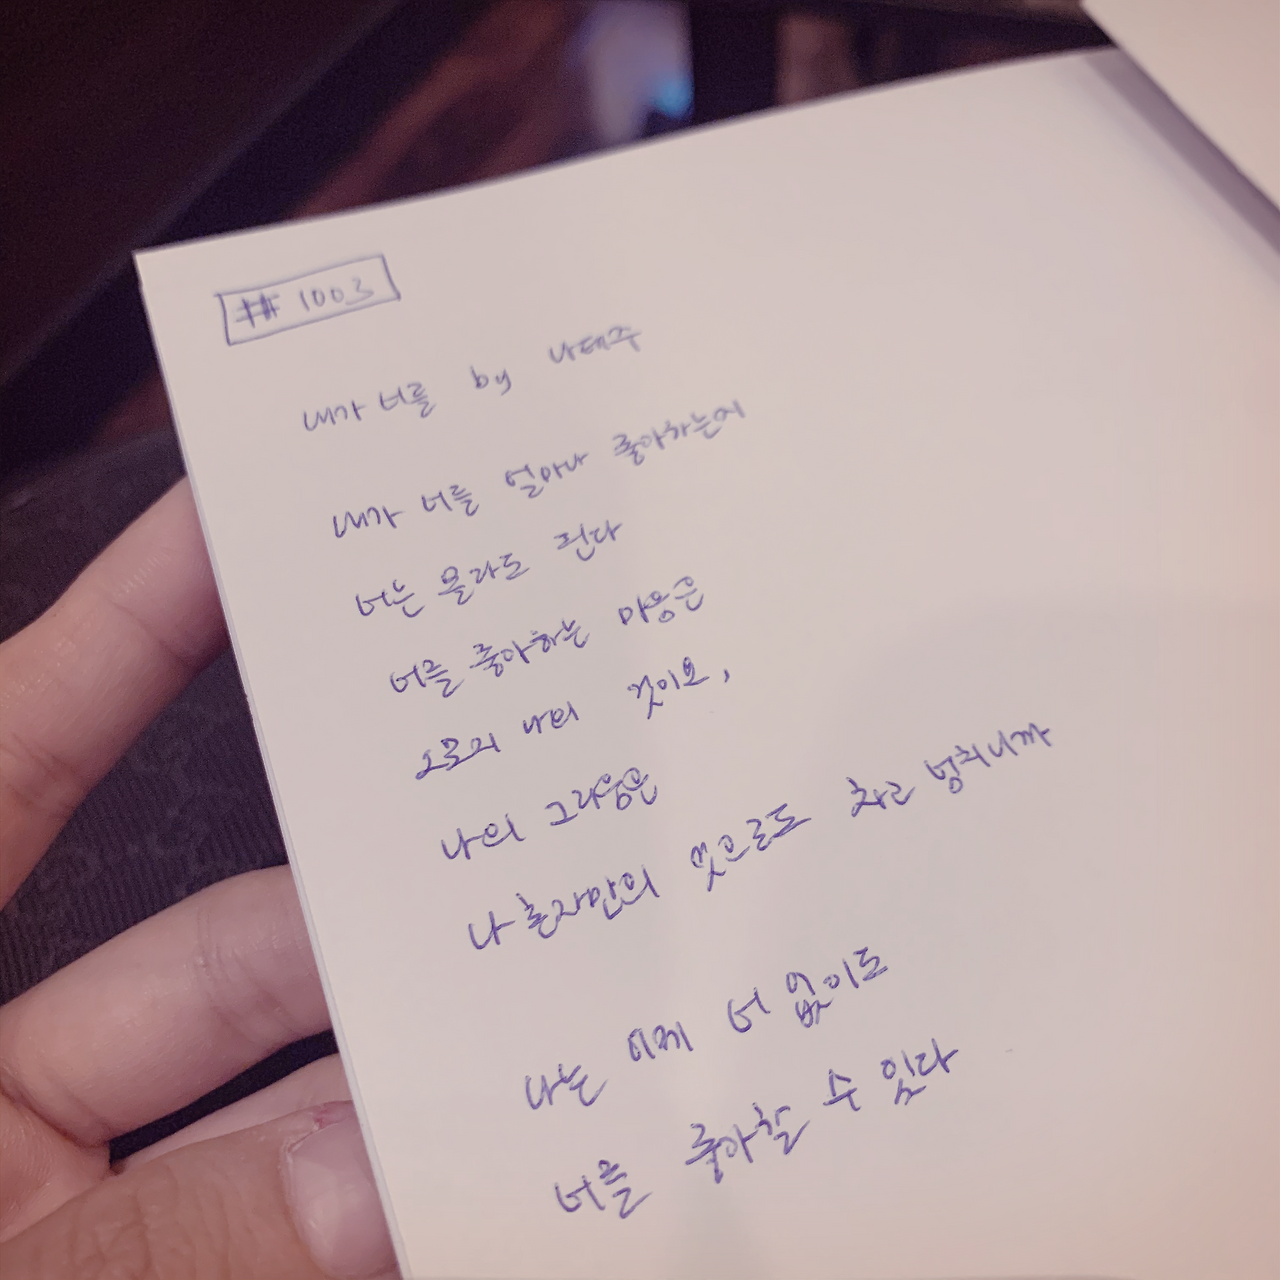 ## 1003
내가 너를 by 나태주
내가 너를 얼마나 좋아하는지
너는 몰라도 된다
너를 좋아하는 마음은
오로지 나의 것이요,
나의 그리움은
나 혼자만의 것으로도 차고 넘치니까
나는 이제 너 없이도
너를 좋아할 수 있다